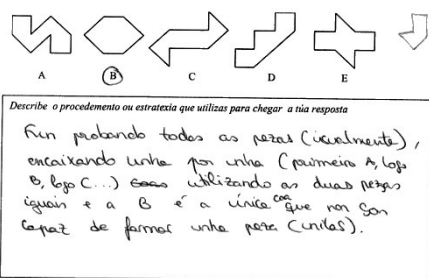 A B C D E
Describe o procedemento ou estratexia que utilizas para chegar a túa resposta
Fun probando todas as pezas (igualmente),
encaixando unha por unha (primeiro A, logo
B, logo C...) utilizando as duas pezas
iguais e a B é a única coa que non son
capaz de formar unha peza (unilas).